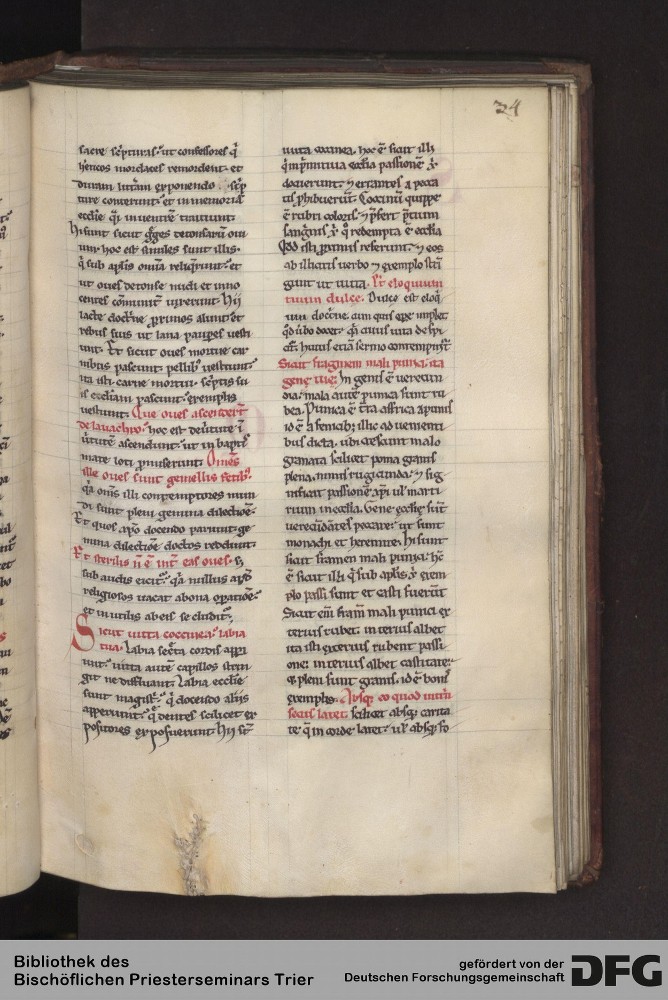 24
sacre sc͛pturas. ut confessores q̇
h̓eticos mordaces remordent. et
duram litt̓am exponendo
ture conterunt. et in memoria
eccl̄ie
Hi sunt sicut g̓ges tonsarū oui
um. hoc est similes sunt illis.
q̇ sub apl̄is om̄ia reliq̄runt. et
ut oues detonse nudi et inno
centes cōmunit̓ uixerunt. Hij
lacte doct̓ne p̱ximos alunt. et
rebus suis ut lana paup̱es uesti
unt. Et sicut oues mortue car
nibus pascunt. pellib; uestiunt.
ita isti carne mortui. sc͛ptis su
is eccl̄iam pascunt. exemplis
uestiunt. Que oues ascendert̄
de lauachro. hoc est de uirtute ī
uirtutē ascendunt. ut in bapti
mate loti p̱miserunt. Om̄s
ille oues sunt gemellis fetib;.
q̇a om̄s illi contemptores mun
di sunt pleni gemina dilectiōe.
Et quos xp̄o docendo pariunt. ge
mina dilectiōe doctos reddunt.
Et sterilis n̄ ē int̓ eas oues. Si
sub audis eicit̓. q̇a nullus
religiosos uacat a bona op̱atiōe.
et inutilis ab eis se cludit̓.
Sicut uitta coccinea. labia
tua. Labia sec̓ta cordis apꝑi
unt. uitta autē capillos strin
git ne diffluant. Labia eccl̄ie
sunt magist̓. q̇ docendo aliis
apperiunt. q̊ dentes scilicet ex
positores exposuerunt. Hij st̄
uitta coccinea. hoc ē sicut illi
q̇ in p̓mitiua eccl̄ia passionē xp̄i
docuerunt. ⁊ errantes a pecca
tis phibuerūt. Coccinū quippe
ē rubri coloris. ⁊ p̄fert p̄cium
sanguīs xp̄i q̊ redempta ē eccl̄ia
Qd̄ isti p̱ximis referunt. ⁊ eos
ab illicitis uerbo ⁊ exemplo st̓i
gunt ut uitta. Et eloquium
tuum dulce. Dulce est eloq̇
um doct̓ne. cum quis ope implet
qd̄ u̓bo docet. q̇a cuius uita despi
cit̓. huius etiā sermo contempnit̓
Sicut fragmen mali punici. ita
gene tue. In genis ē uerecun
dia. mala autē punica sunt ru
bea. Punica ē t̓ra affrica a punis
id ē a fenicib; illic aduenienti
bus dicta. ubi crescunt malo
granata scilicet poma granis
plena. nimis rugicunda. ⁊ sig
nificant passionē xp̄i ul̓ marti
rum in eccl̄ia. Gene eccl̄ie sūt
uerecūdātes peccare. ut sunt
monachi et heremite. Hi sunt
sicut framen mali punici. hc̄
ē sicut illi q̇ sub apl̄is. xp̄i exem
plo passi sunt et casti fuerūt
Sicut em̄ fram̄ mali punici ex
terius rubet. interius albet
ita isti exterius rubent passi
one. interius albet castitate.
⁊ pleni sunt granis. id ē bonis
exemplis. Absq; eo quod intrī
secus latet. scilicet absq; carita
te q̄ in corde latet. ul̓ absq; fo
Bibliothek des
Bischöflichen Priesterseminars Trier
gefördert von der
Deutschen Forschungsgemeinschaft
DFG